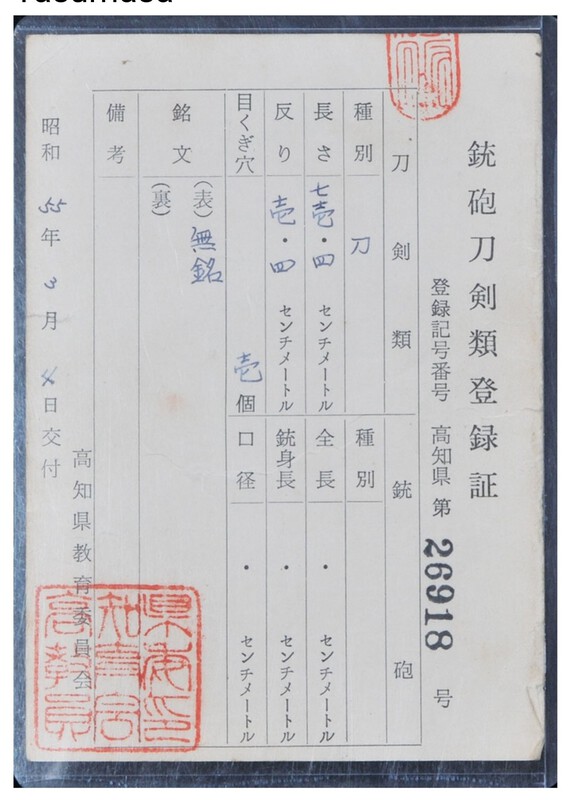 銃砲刀剣類登録証
登録記号番号 高知県 第 26918 号
刀剣類 銃砲
種別 刀 種別
長さ 七壱・四 センチメートル 全長 ・ センチメートル
反り 壱・四 センチメートル 銃身長 ・ センチメートル
目くぎ穴 壱個 口径 ・ センチメートル
銘文 (表) 無銘
(裏)
備考
高知県教育委員会
昭和 55年 3月 4日交付